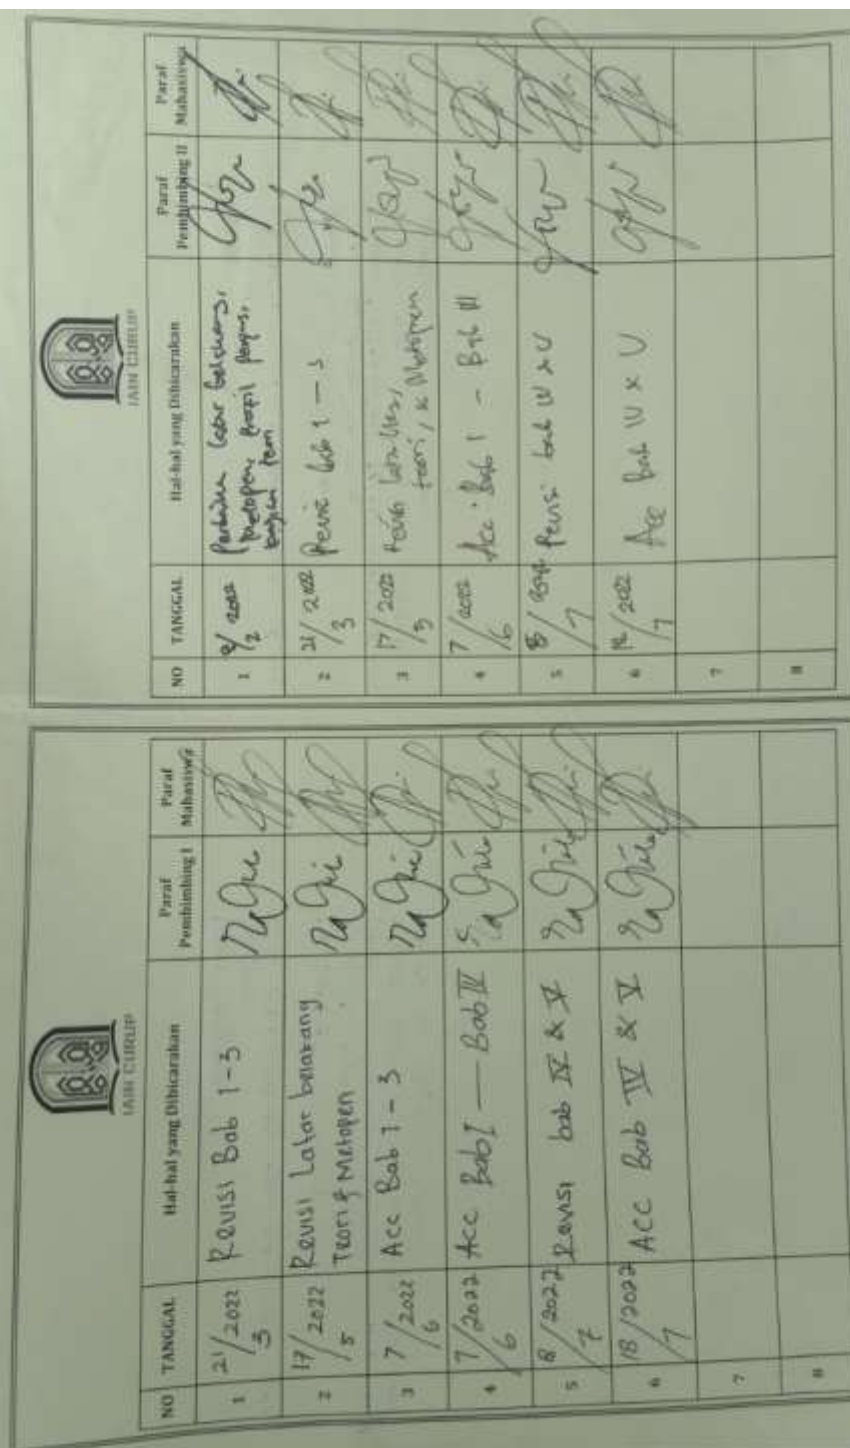 IAIN CURUP
NO TANGGAL Hal-hal yang Dibicarakan Paraf Pembimbing I Paraf Mahasiswa
1 21/2022 3 Revisi Bab 1-3
2 17/2022 5 Revisi Latar belakang
Teori & Metopen
3 7/2022 6 Acc Bab 1-3
4 7/2022 6 Acc Bab I — Bab III
5 8/2022 7 Revisi bab IV & V
6 18/2022 7 Acc Bab IV & V
7
8
IAIN CURUP
NO TANGGAL Hal-hal yang Dibicarakan Paraf Pembimbing II Paraf Mahasiswa
1 8/2022 2 Latar belakang,
Metopen, Profil
teori
2 21/2022 3 Revisi bab 1-3
3 17/2022 5 Revisi
teori, & Metopen
4 7/2022 6 Acc Bab I - Bab III
5 8/2022 7 Revisi bab IV & V
6 18/2022 7 Acc Bab IV & V
7
8